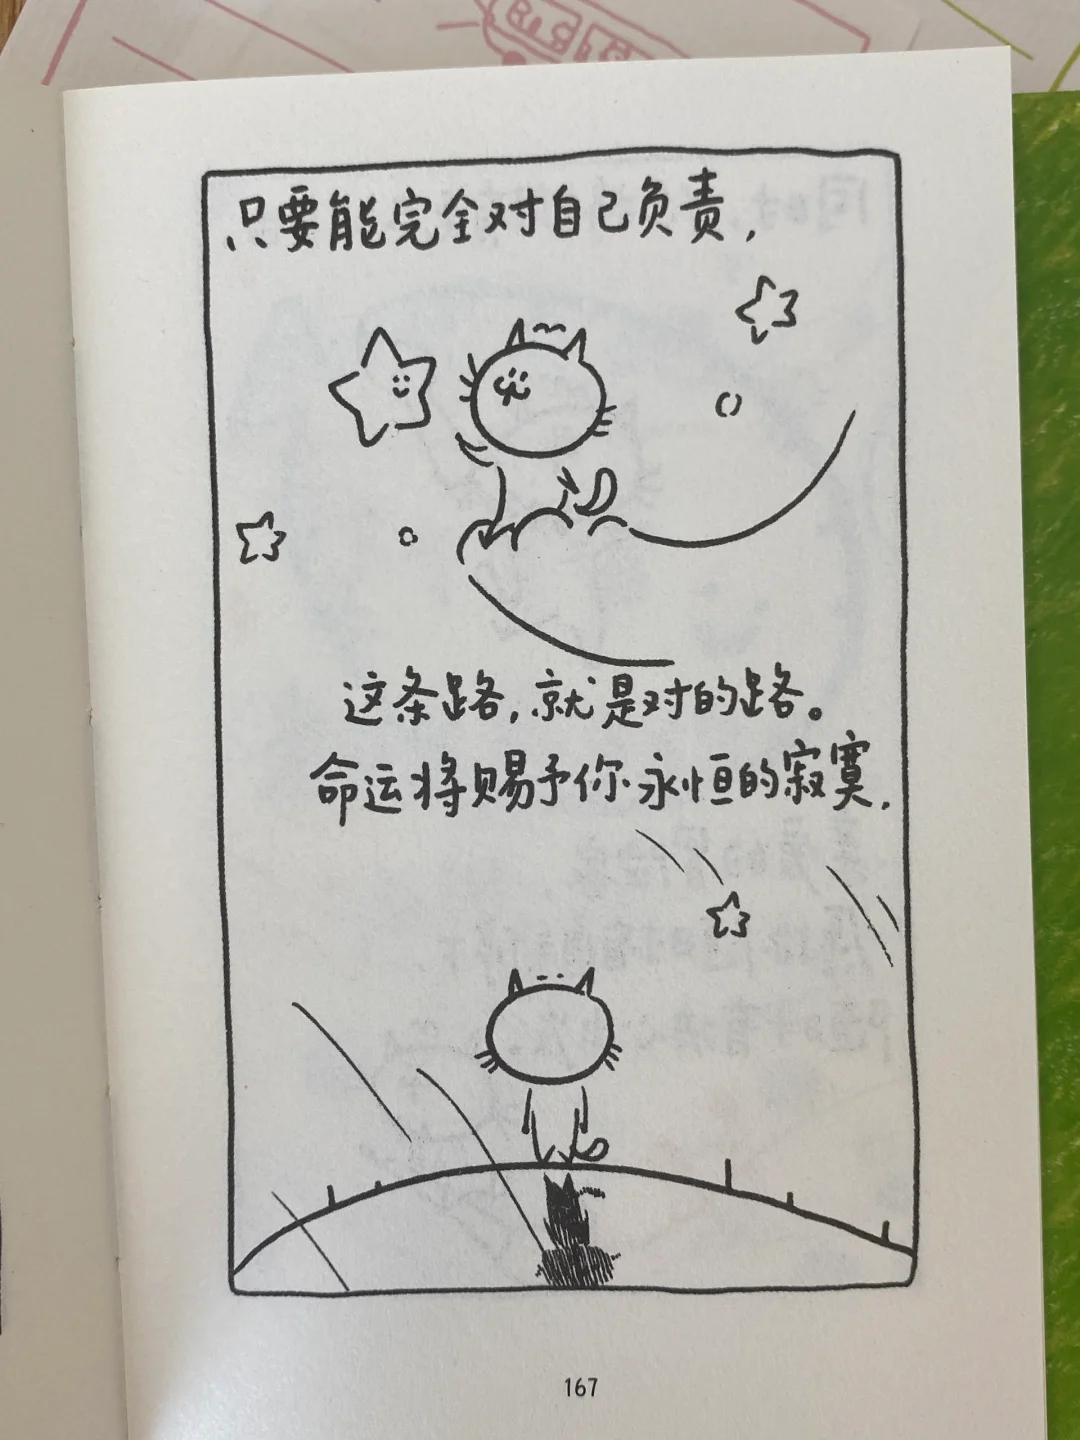 只要能完全对自己负责，
这条路，就是对的路。
命运将赐予你永恒的寂寞，
167